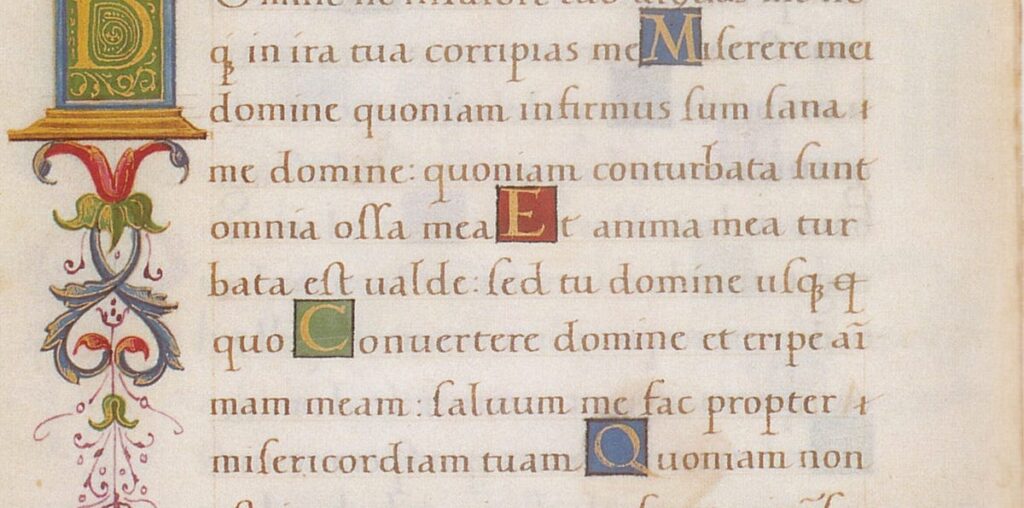 D
Domine ne in furore tuo arguas me ne
q̃ in ira tua corripias me Miserere mei
domine quoniam infirmus sum sana
me domine: quoniam conturbata sunt
omnia ossa mea Et anima mea tur
bata est ualde: sed tu domine usq̃
quo Conuertere domine et eripe aī
mam meam: saluum me fac propter
misericordiam tuam Quoniam non